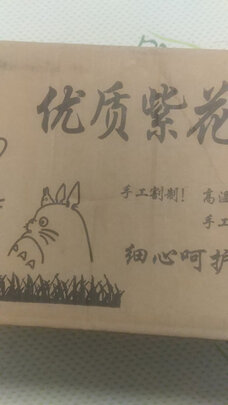 优质紫花
手工割制！ 高温
手工
细心呵护